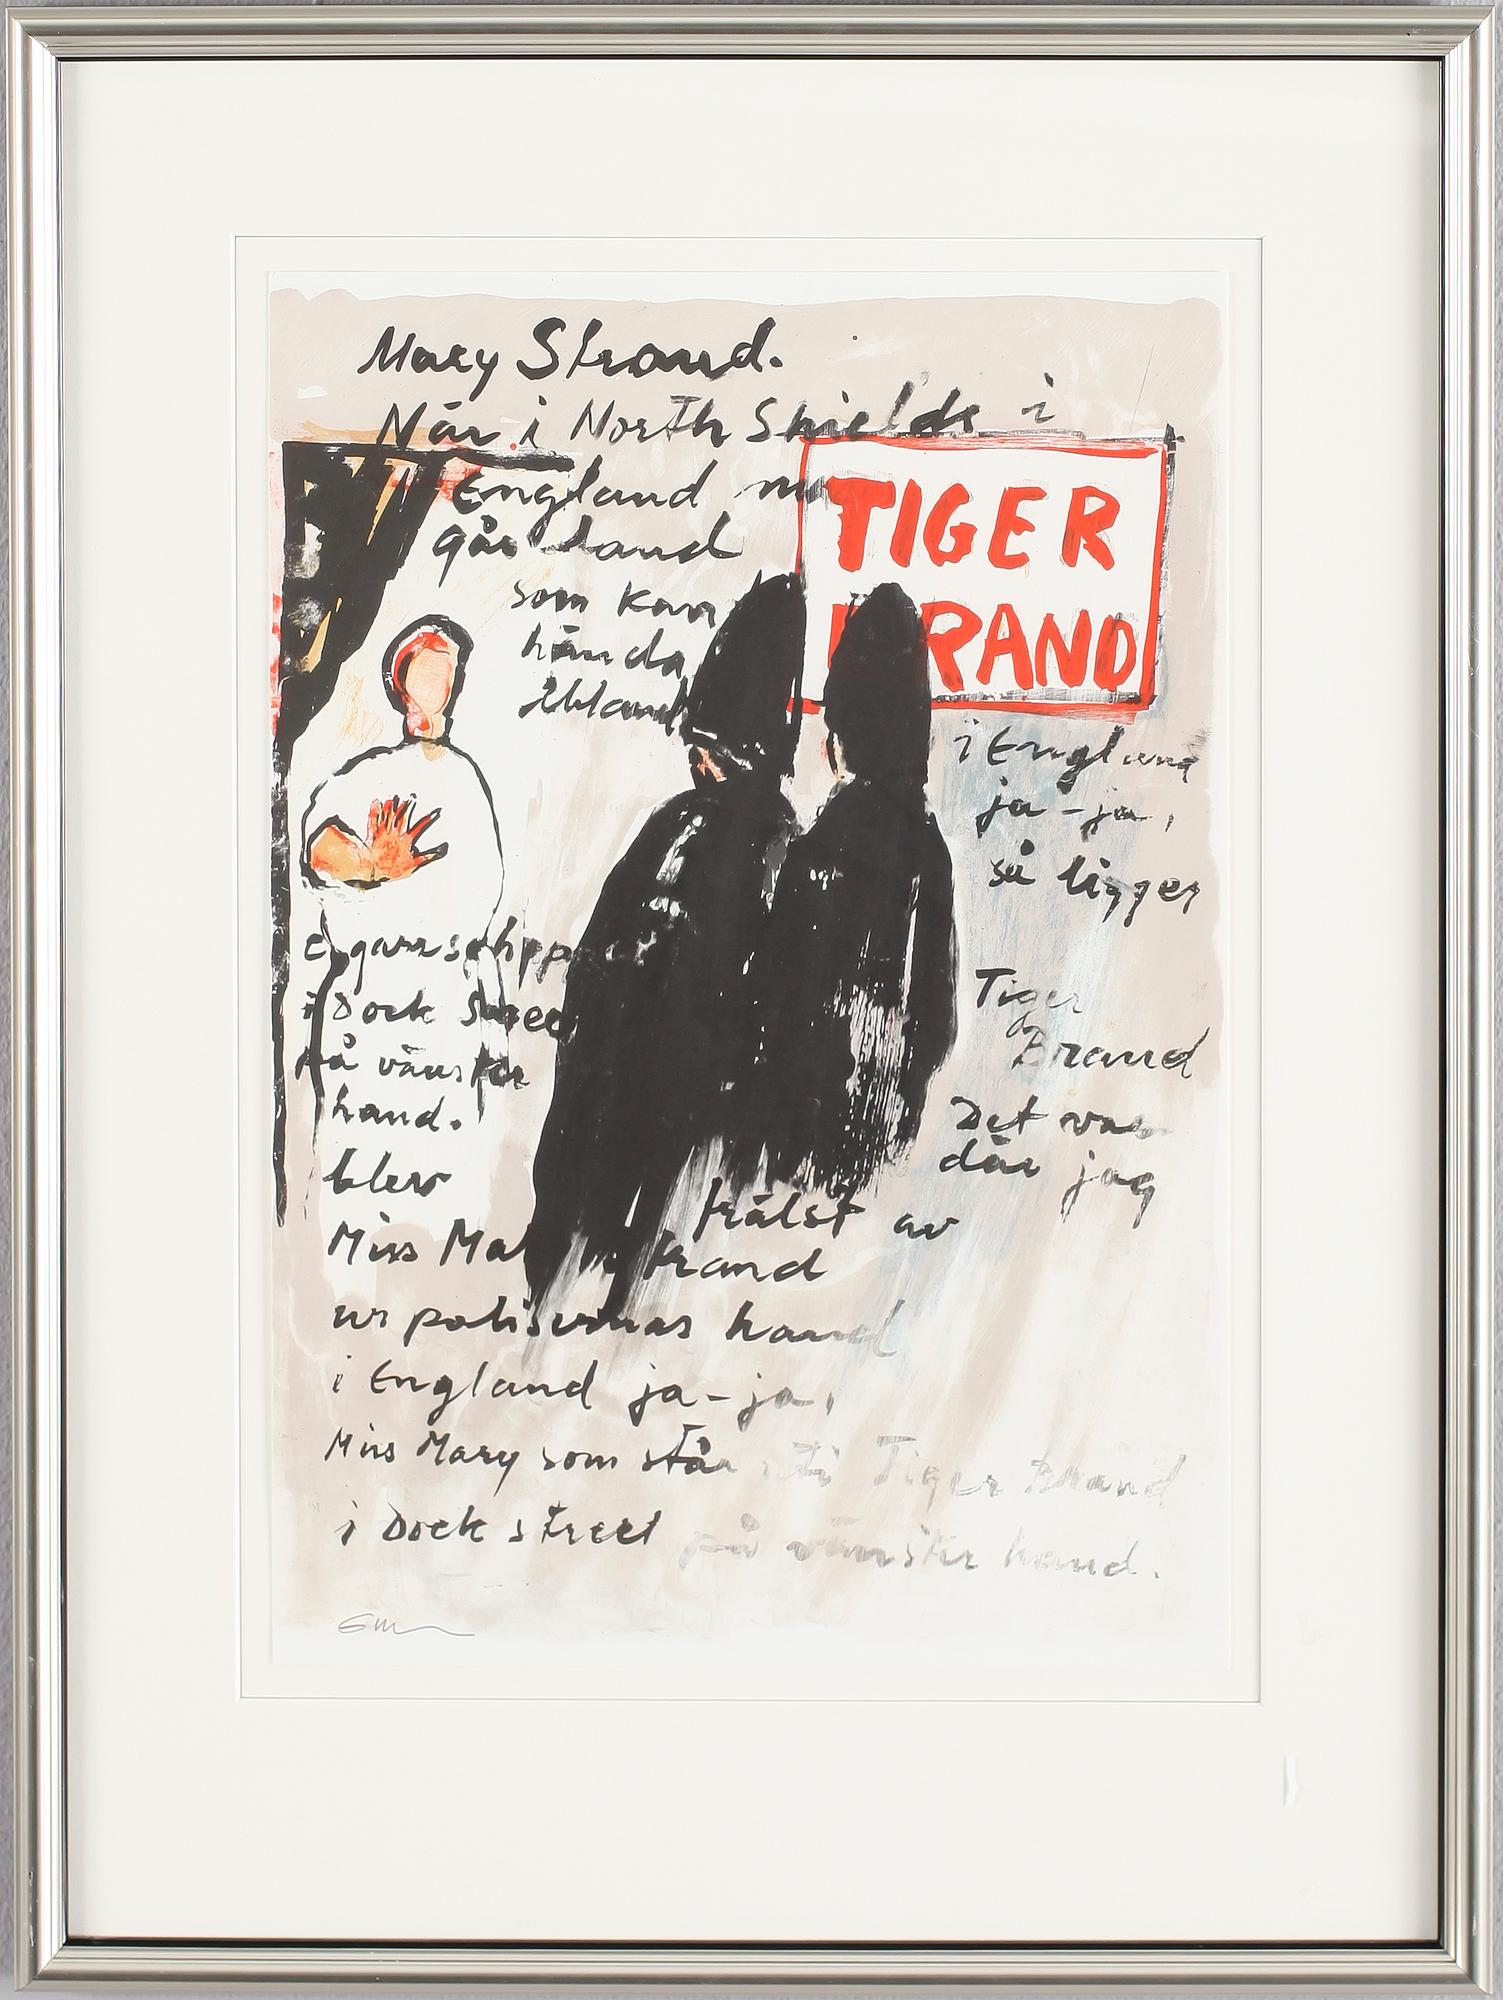 Mary Strand.
När i North Shields i
England nu
går land
som kan
hända
ibland
TIGER
BRAND
i England
ja-ja,
så ligger
i Dock Street
på vänster
hand.
Tiger
Brand
Det var
där jag
blev
frälst av
Miss Mary Strand
ur polisernas hand
i England ja-ja,
Miss Mary som står i Tiger Brand
i Dock street på vänster hand.